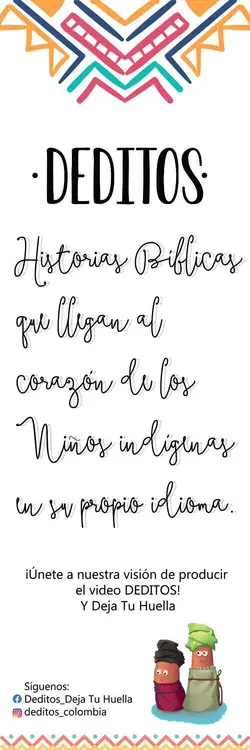 ·DEDITOS·
Historias Bíblicas
que llegan al
corazón de los
Niños indígenas
en su propio idioma.
¡Únete a nuestra visión de producir
el video DEDITOS!
Y Deja Tu Huella
Síguenos:
Deditos_Deja Tu Huella
deditos_colombia